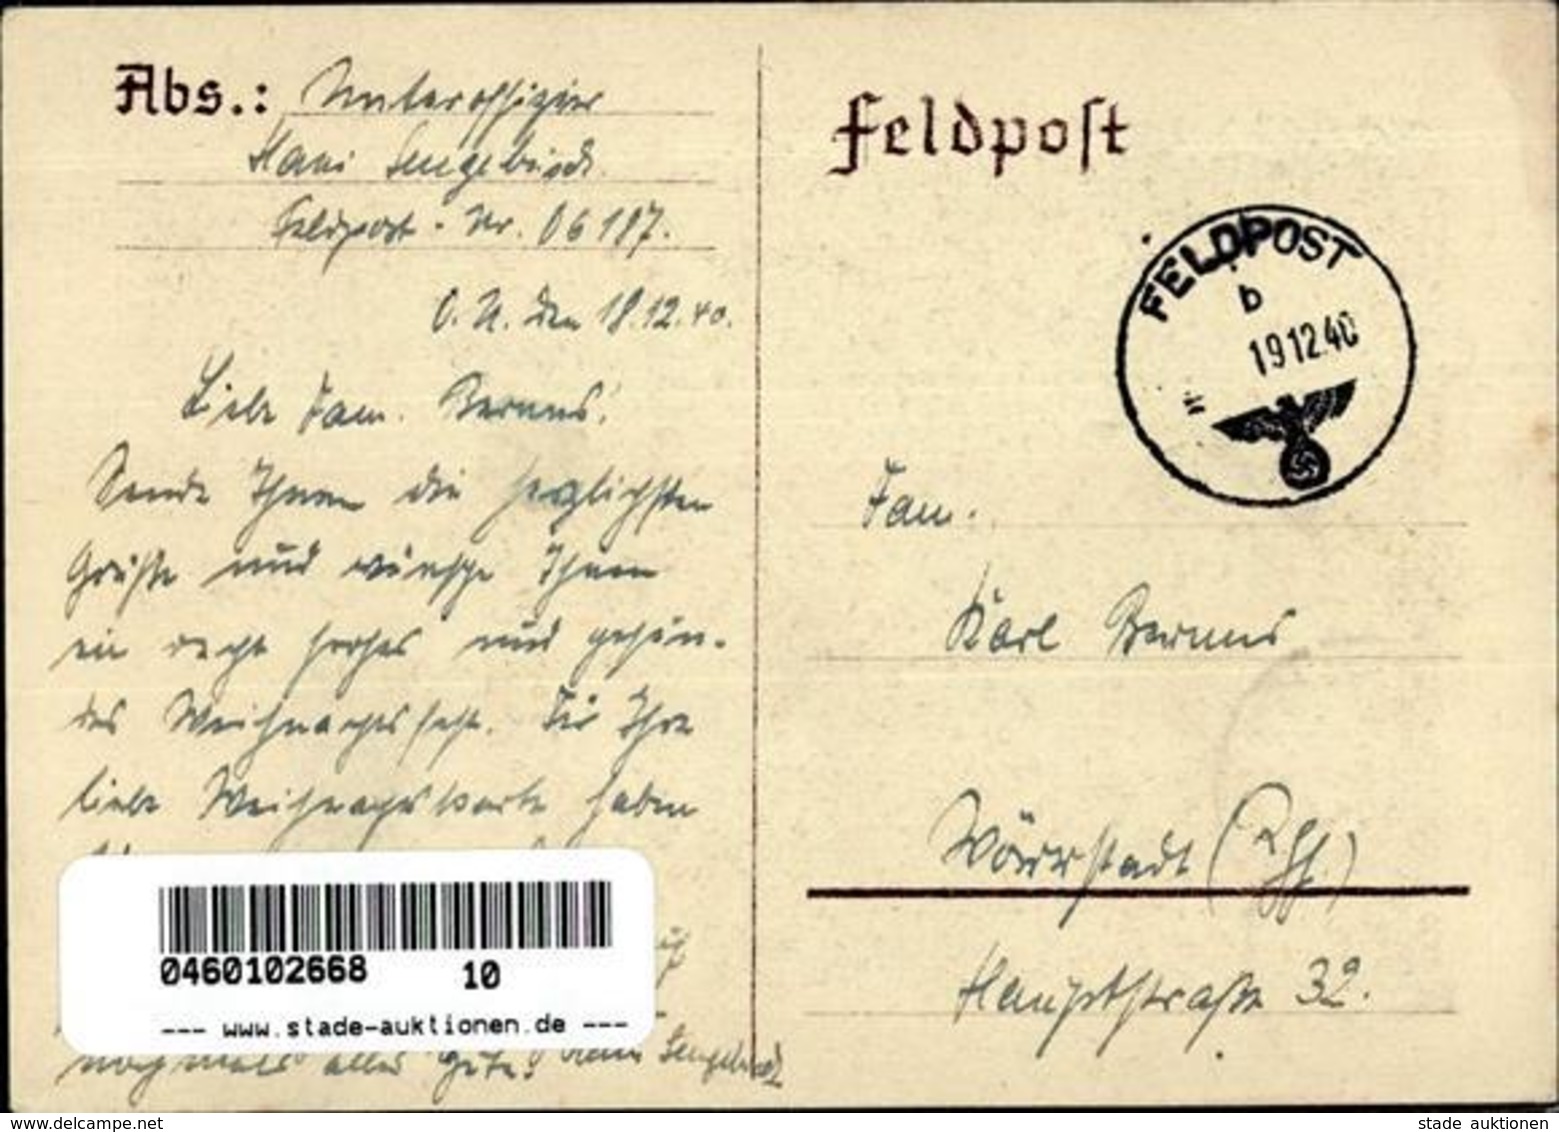 Abs.: Unteroffizier
Hans Sengebusch
Feldpost - Nr. 06187.
O. U. den 18.12.40.
Liebe Fam. Bernns!
Sende Ihnen die herzlichsten
Grüße und wünsche Ihnen
ein recht frohes und gesun-
des Weihnachtsfest. Für Ihre
liebe Weihnachtskarte haben
0460102668 10
--- www.stade-auktionen.de ---
nochmals alles Gute! Hans
Feldpost
FELDPOST
b
19 12.40
Fam.
Karl
Wörrstadt (Rhh.)
Hauptstraße 32.
www.delcampe.net
stade auktionen